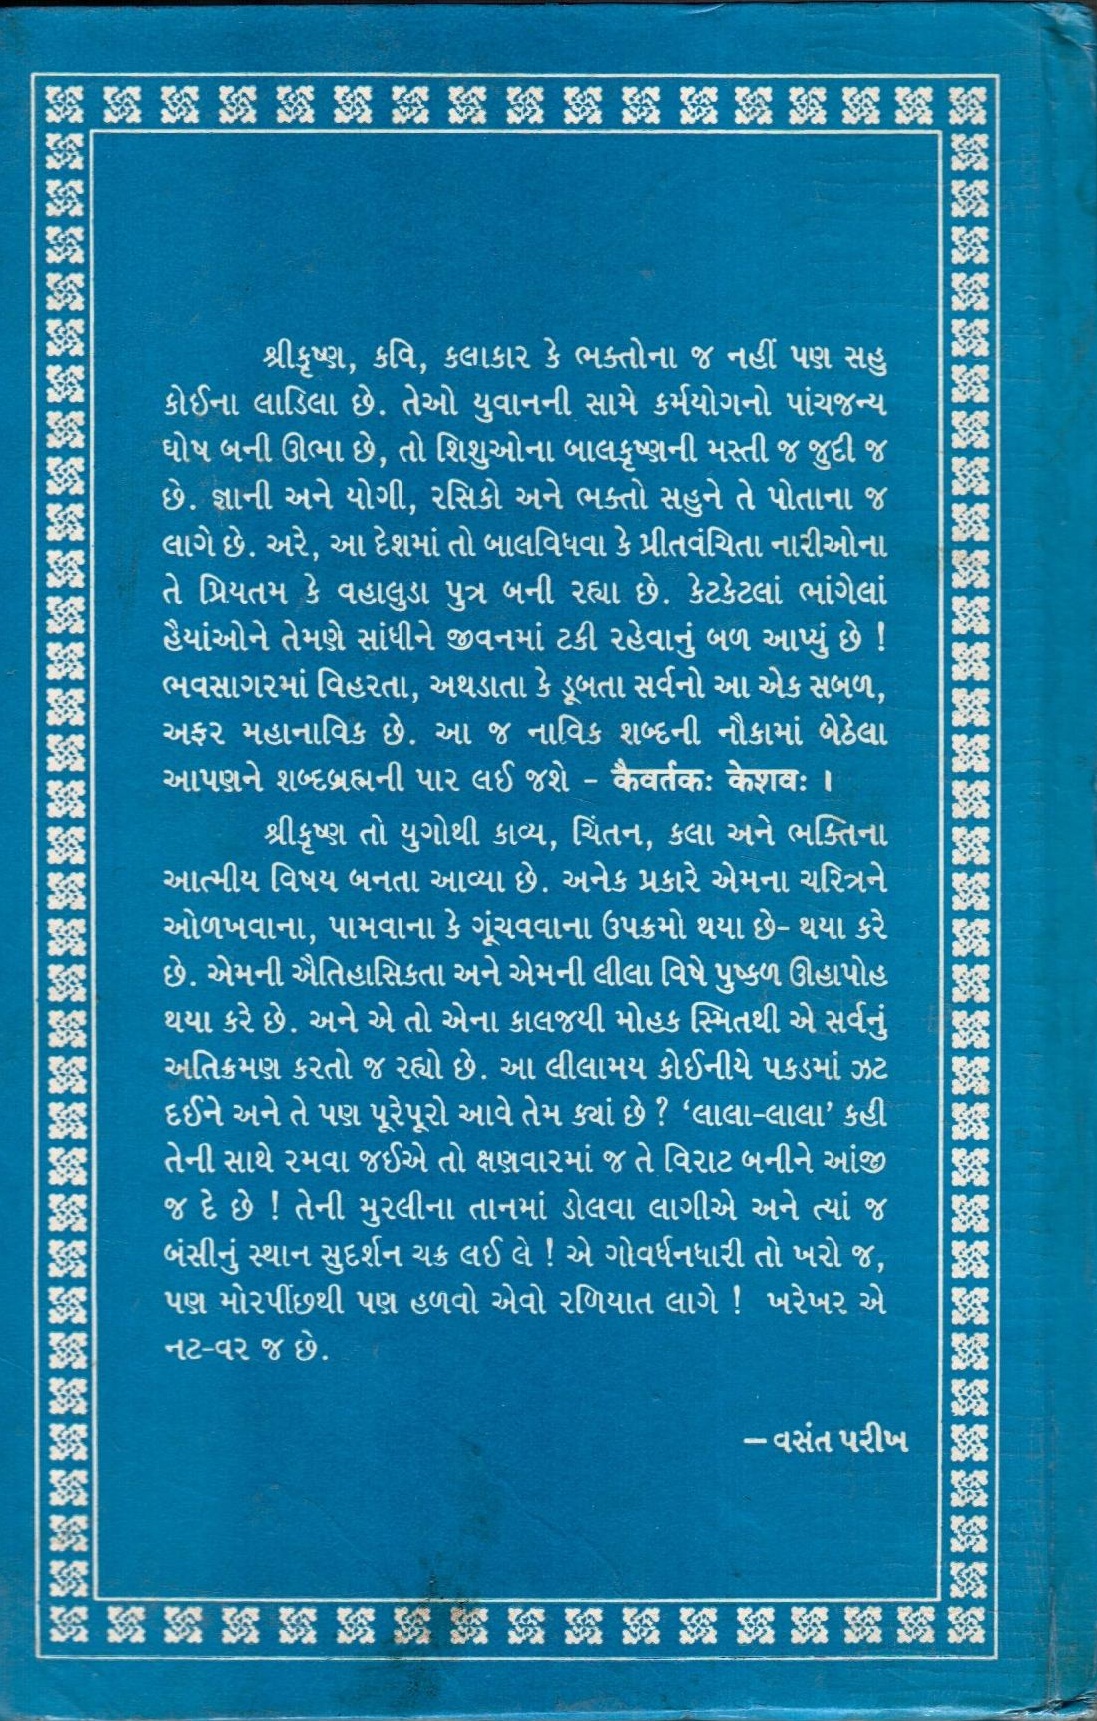 શ્રીકૃષ્ણ, કવિ, કલાકાર કે ભક્તોના જ નહીં પણ સહુ
કોઈના લાડિલા છે. તેઓ યુવાનની સામે કર્મયોગનો પાંચજન્ય
ઘોષ બની ઊભા છે, તો શિશુઓના બાલકૃષ્ણની મસ્તી જ જુદી જ
છે. જ્ઞાની અને યોગી, રસિકો અને ભક્તો સહુને તે પોતાના જ
લાગે છે. અરે, આ દેશમાં તો બાલવિધવા કે પ્રીતવંચિતા નારીઓના
તે પ્રિયતમ કે વહાલુડા પુત્ર બની રહ્યા છે. કેટકેટલાં ભાંગેલાં
હૈયાંઓને તેમણે સાંધીને જીવનમાં ટકી રહેવાનું બળ આપ્યું છે !
ભવસાગરમાં વિહરતા, અથડાતા કે ડૂબતા સર્વનો આ એક સબળ,
અફર મહાનાવિક છે. આ જ નાવિક શબ્દની નૌકામાં બેઠેલા
આપણને શબ્દબ્રહ્મની પાર લઈ જશે - कैवर्तकः केशवः ।
શ્રીકૃષ્ણ તો યુગોથી કાવ્ય, ચિંતન, કલા અને ભક્તિના
આત્મીય વિષય બનતા આવ્યા છે. અનેક પ્રકારે એમના ચરિત્રને
ઓળખવાના, પામવાના કે ગૂંચવવાના ઉપક્રમો થયા છે- થયા કરે
છે. એમની ઐતિહાસિકતા અને એમની લીલા વિષે પુષ્કળ ઊહાપોહ
થયા કરે છે. અને એ તો એના કાલજયી મોહક સ્મિતથી એ સર્વનું
અતિક્રમણ કરતો જ રહ્યો છે. આ લીલામય કોઈનીયે પકડમાં ઝટ
દઈને અને તે પણ પૂરેપૂરો આવે તેમ ક્યાં છે ? ‘લાલા-લાલા’ કહી
તેની સાથે રમવા જઈએ તો ક્ષણવારમાં જ તે વિરાટ બનીને આંજી
જ દે છે ! તેની મુરલીના તાનમાં ડોલવા લાગીએ અને ત્યાં જ
બંસીનું સ્થાન સુદર્શન ચક્ર લઈ લે ! એ ગોવર્ધનધારી તો ખરો જ,
પણ મોરપીંછથી પણ હળવો એવો રળિયાત લાગે ! ખરેખર એ
નટ-વર જ છે.
– વસંત પરીખ